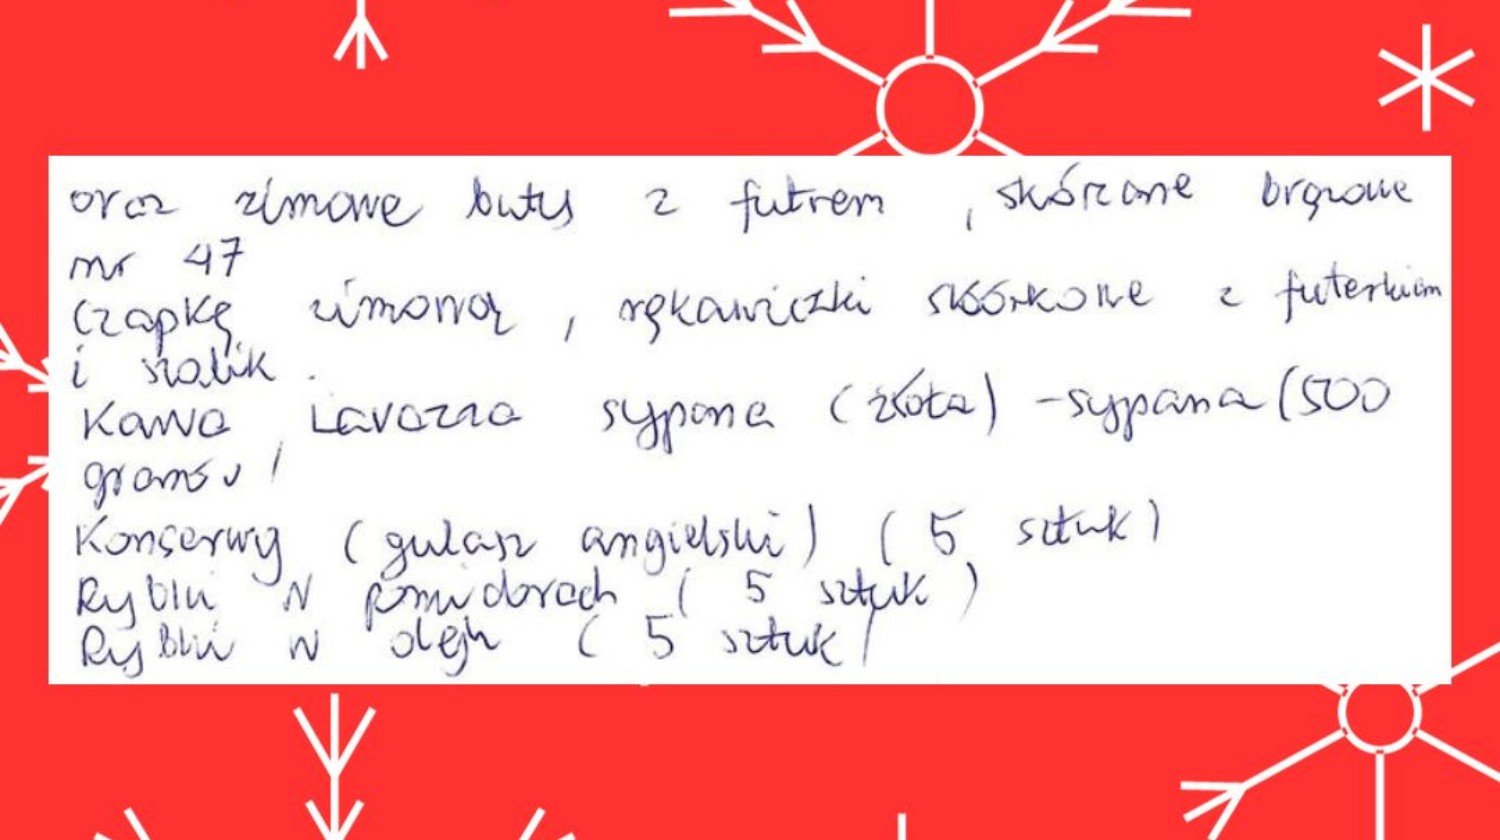 oraz zimowe buty z futrem, skórzane brązowe
nr 47
Czapkę zimową, rękawiczki skórkowe z futerkiem
i szalik.
Kawa Lavazza sypana (złota) - sypana (500
gramów)
Konserwy (gulasz angielski) (5 sztuk)
Rybki w pomidorach (5 sztuk)
Rybki w oleju (5 sztuk)